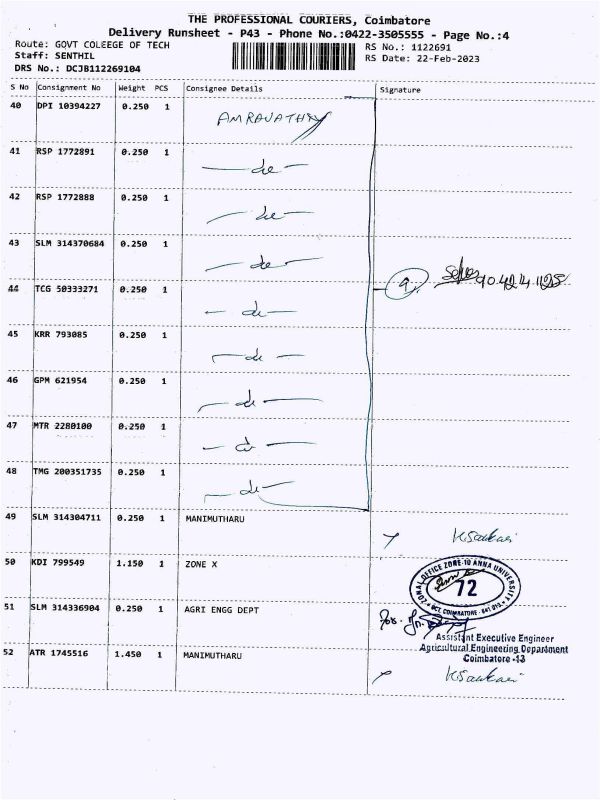 THE PROFESSIONAL COURIERS, Coimbatore
Delivery Runsheet - P43 - Phone No.:0422-3505555 - Page No.:4
Route: GOVT COLEEGE OF TECH RS No.: 1122691
Staff: SENTHIL RS Date: 22-Feb-2023
DRS No.: DCJB112269104
S No Consignment No Weight PCS Consignee Details Signature
40 DPI 10394227 0.250 1 AMRAVATHY
41 RSP 1772891 0.250 1 — do —
42 RSP 1772888 0.250 1 — do —
43 SLM 314370684 0.250 1 — do —
9
44 TCG 50333271 0.250 1 — do —
45 KRR 793085 0.250 1 — do —
46 GPM 621954 0.250 1 — do —
47 MTR 2280100 0.250 1 — do —
48 TMG 200351735 0.250 1 — do —
49 SLM 314304711 0.250 1 MANIMUTHARU
50 KDI 799549 1.150 1 ZONE X
ZONAL OFFICE ZONE-10 ANNA UNIVERSITY
72
COIMBATORE - 641 013
51 SLM 314336904 0.250 1 AGRI ENGG DEPT
Assistant Executive Engineer
Agricultural Engineering Department
Coimbatore -13
52 ATR 1745516 1.450 1 MANIMUTHARU